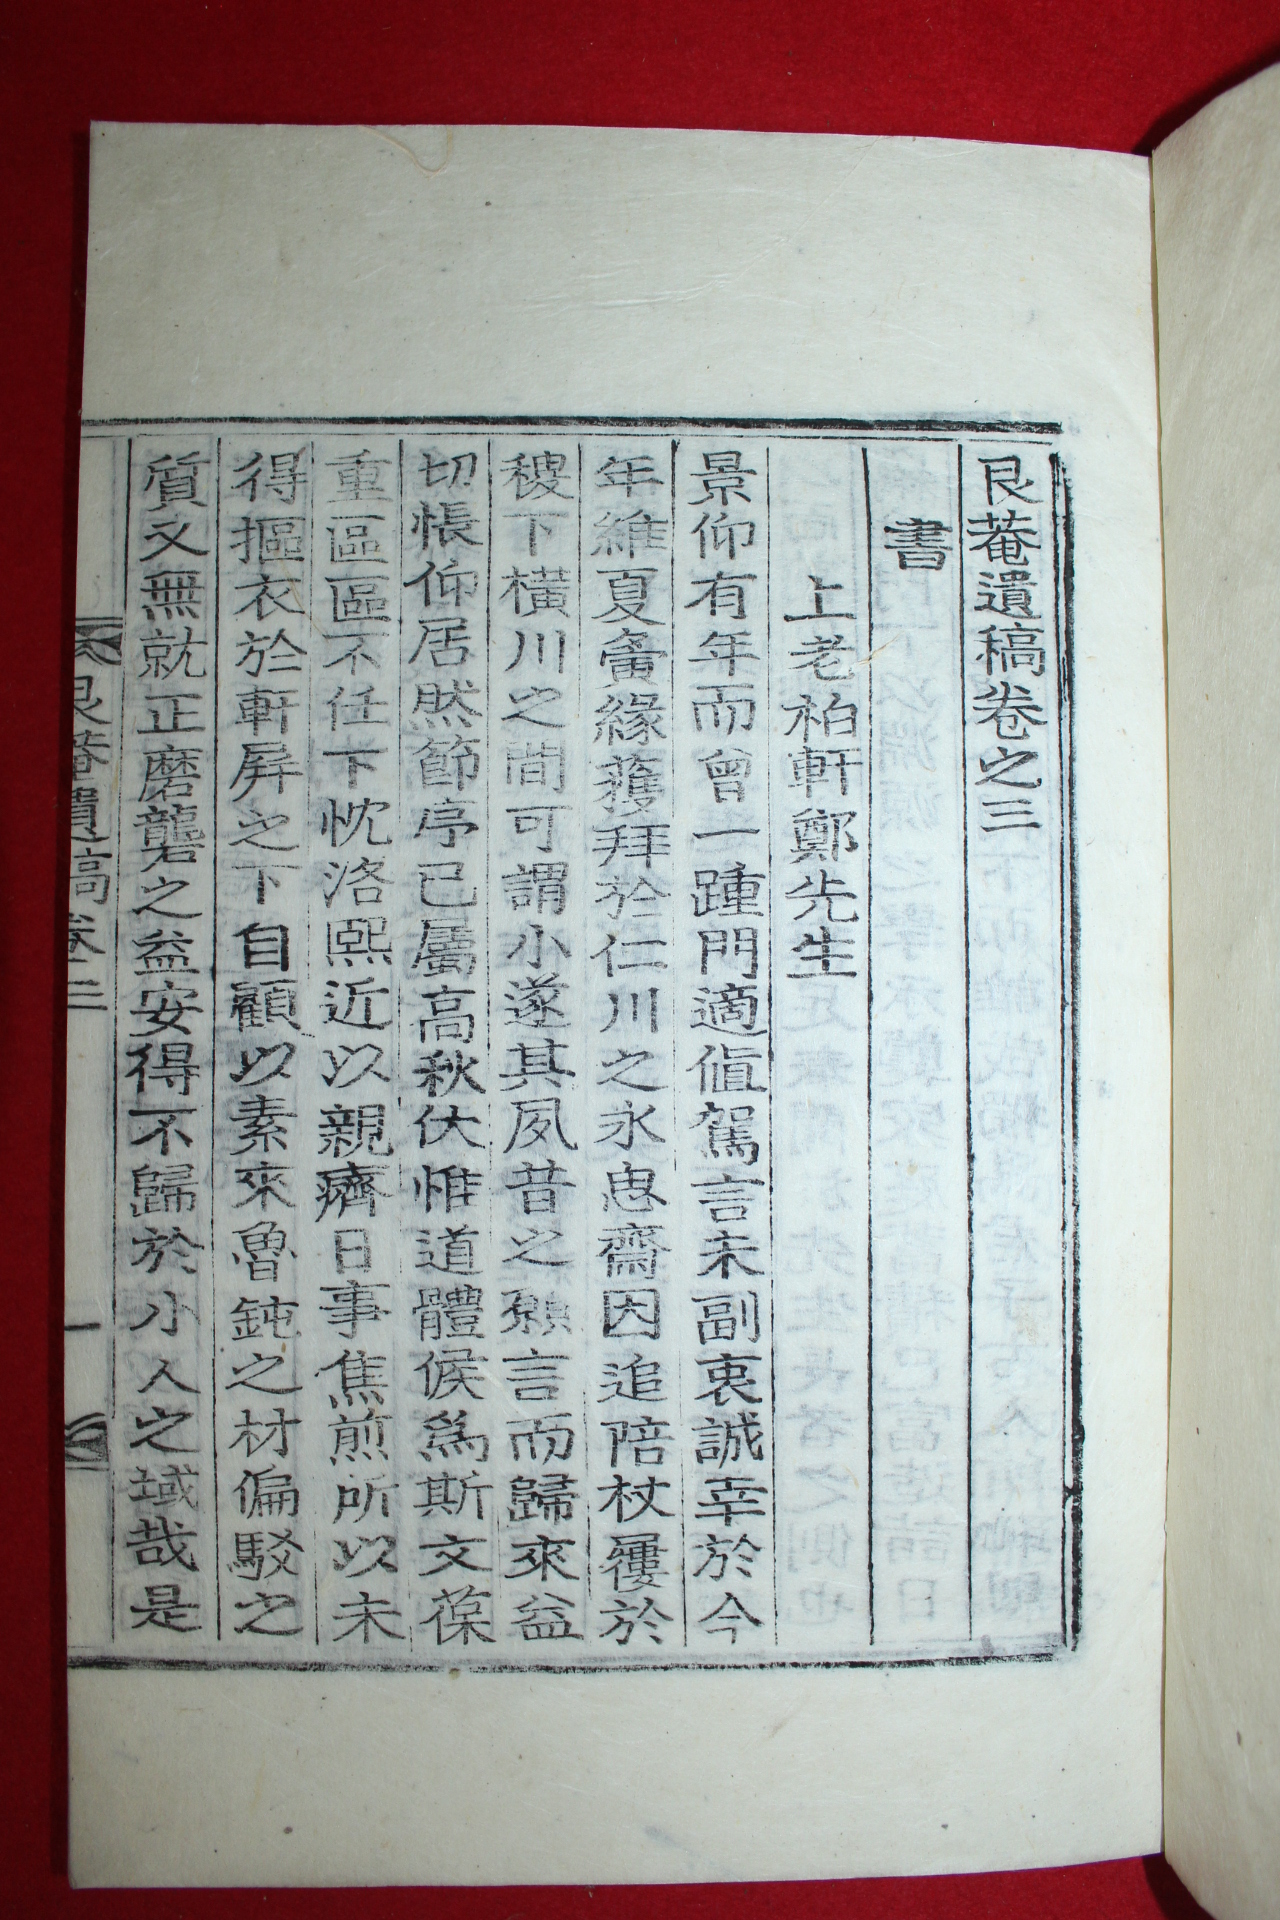 艮菴遺稿卷之三
書
上老柏軒鄭先生
景仰有年而曾一踵門適値駕言未副衷誠幸於今
年維夏夤緣獲拜於仁川之永思齋因追陪杖屨於
稷下橫川之間可謂小遂其夙昔之願言而歸來益
切悵仰居然節序已屬高秋伏惟道體候爲斯文葆
重區區不任下忱洛熙近以親癠日事焦煎所以未
得摳衣於軒屛之下自顧以素來魯鈍之材偏駁之
質又無就正磨礱之益安得不歸於小人之域哉是
艮菴遺稿卷三
一